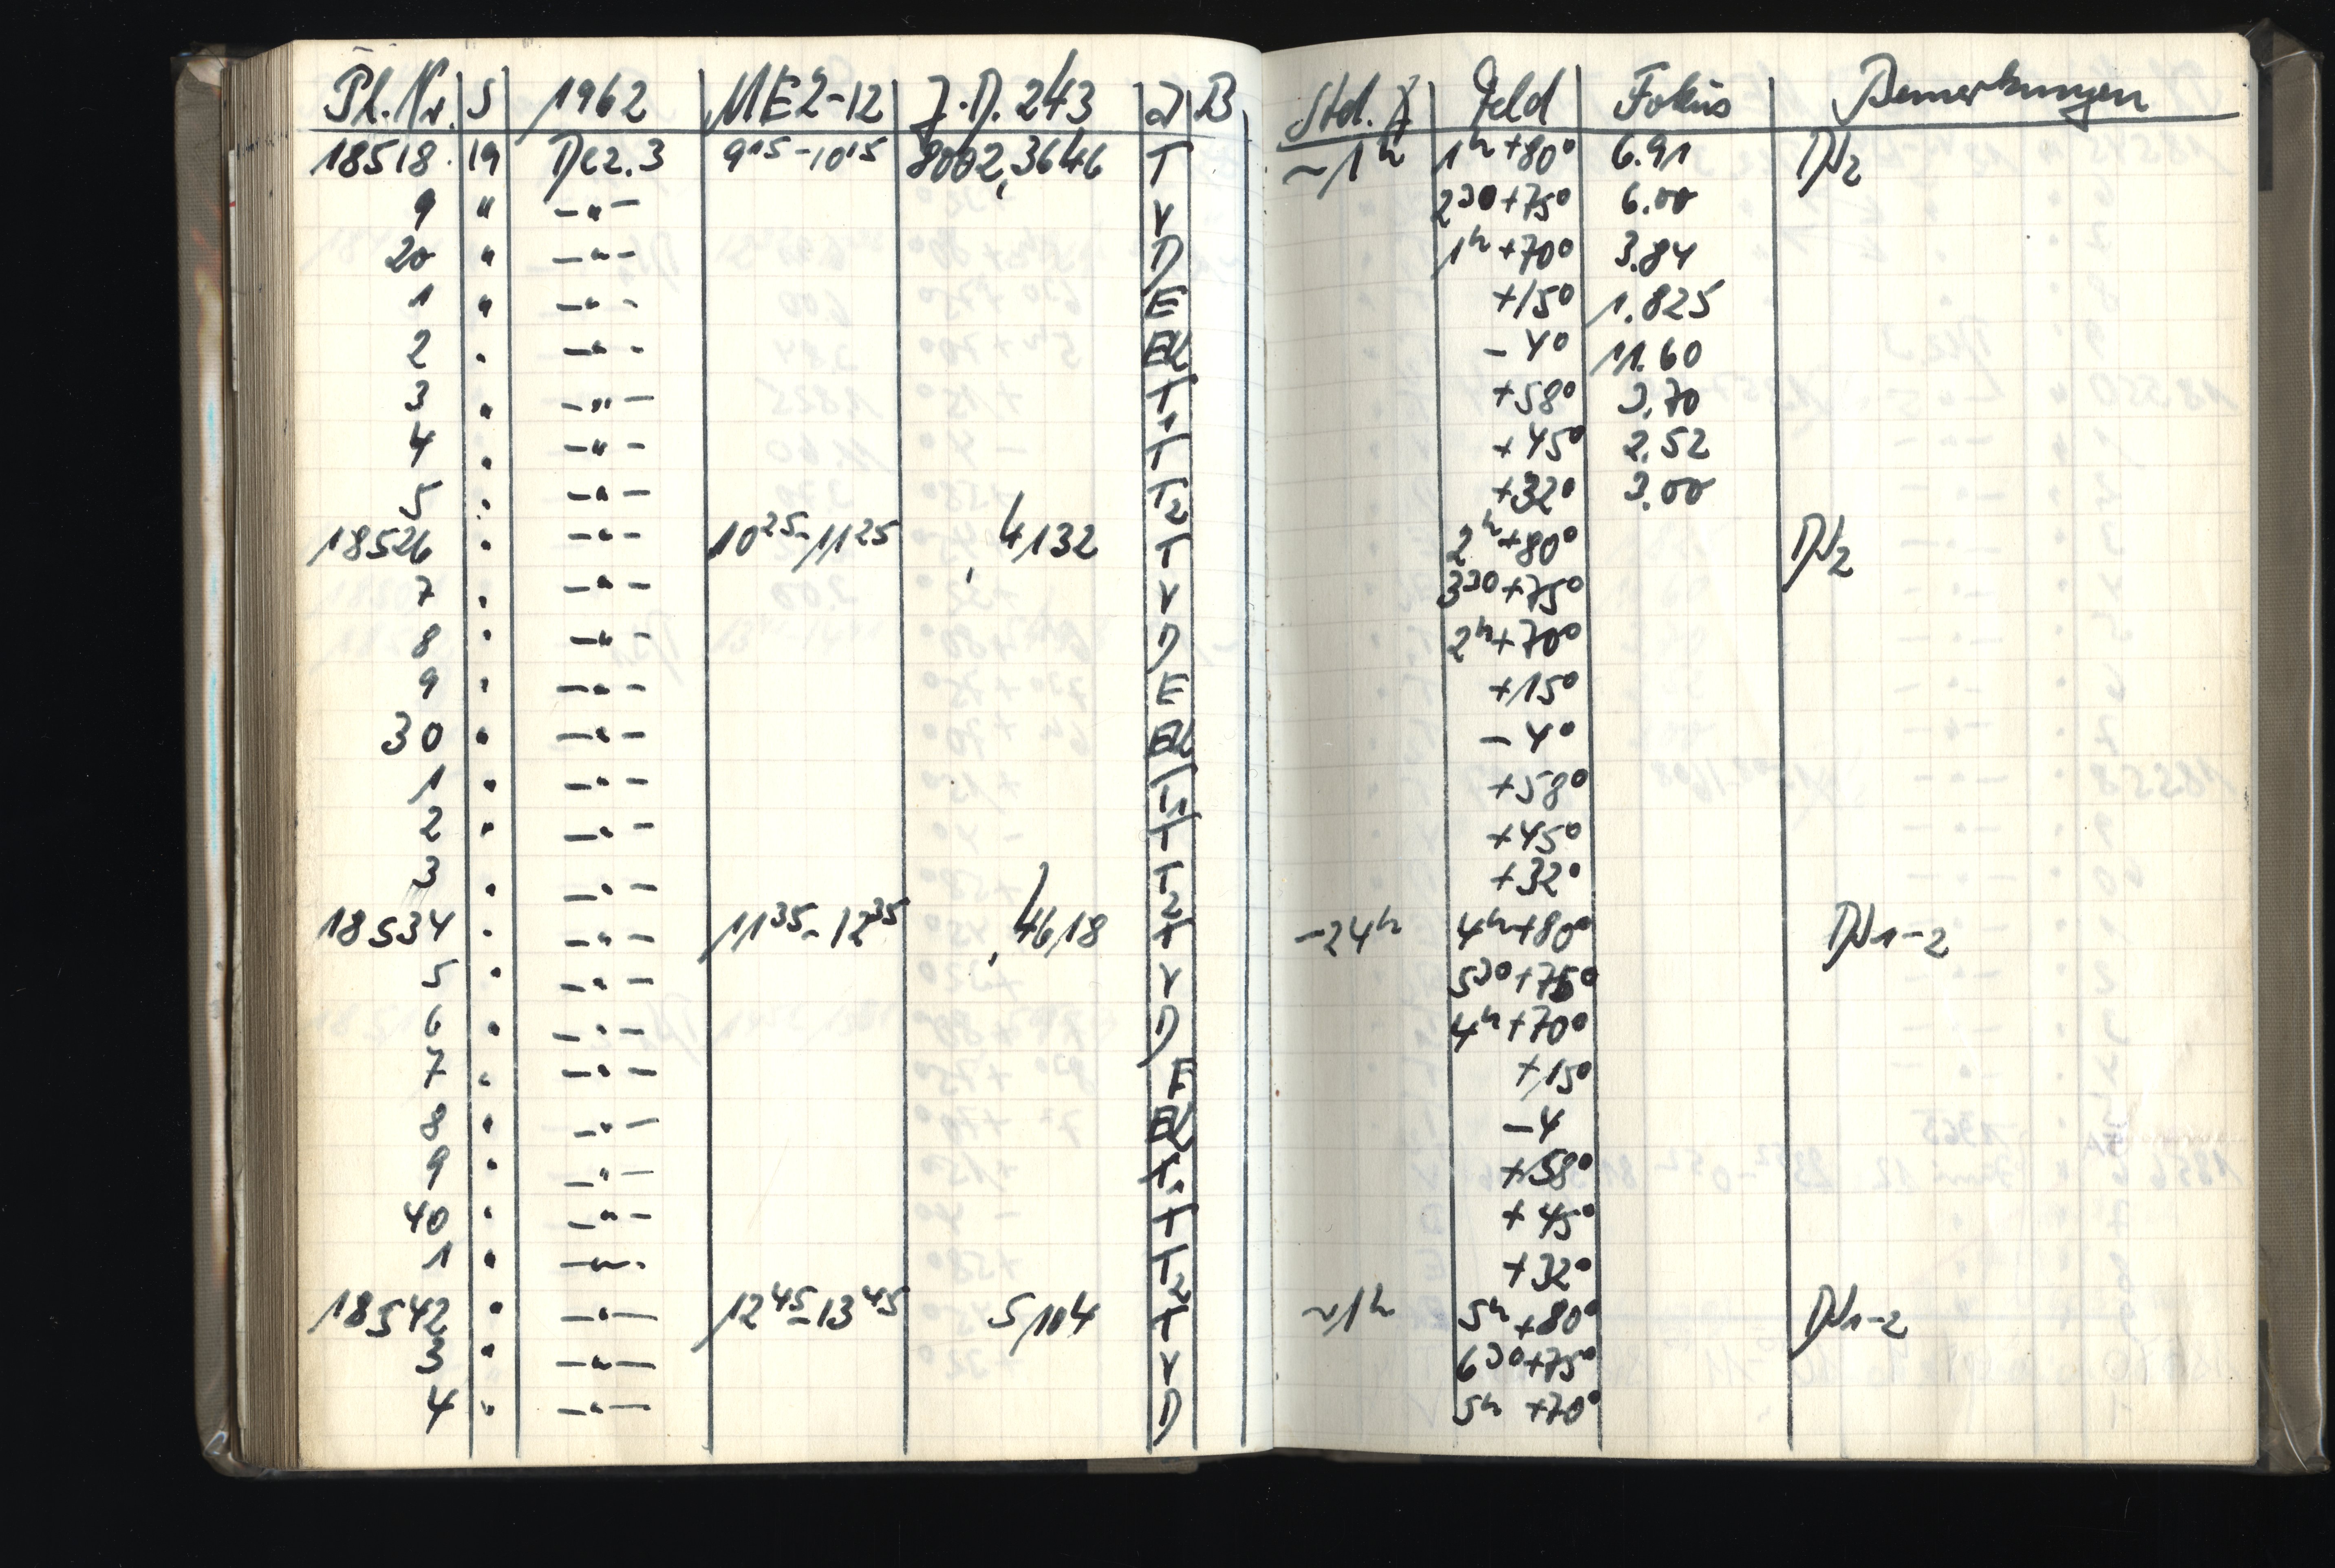 Pl. Nr. S 1962 MEZ-12 J.D. 243 J B Std. ∢ Feld Fokus Bemerkungen
18518 19 Dez. 3 9 15 - 10 15 8002,3646 T ~1h 1h+80° 6.91 DN2
9 " -"- V 2 30 +75° 6.00
20 " -"- D 1h+70° 3.84
1 " -"- E +15° 1.825
2 " -"- EK -4° 11.60
3 " -"- T1 +58° 3.70
4 " -"- T +45° 2.52
5 " -"- T2 +32° 3.00
18526 " -"- 10 25 - 11 25 ,4132 T 2h+80° DN2
7 " -"- V 3 30 +75°
8 " -"- D 2h+70°
9 " -"- E +15°
30 " -"- EK -4°
1 " -"- T1 +58°
2 " -"- T +45°
3 " -"- T2 +32°
18534 " -"- 11 35 - 12 35 ,4618 T -24h 4h+80° DN1-2
5 " -"- V 5 30 +75°
6 " -"- D 4h+70°
7 " -"- E +15°
8 " -"- EK -4
9 " -"- T1 +58°
40 " -"- T +45°
1 " -"- T2 +32°
18542 " -"- 12 45 - 13 45 5104 T ~1h 5h+80° DN1-2
3 " -"- V 6 30 +75°
4 " -"- D 5h +70°